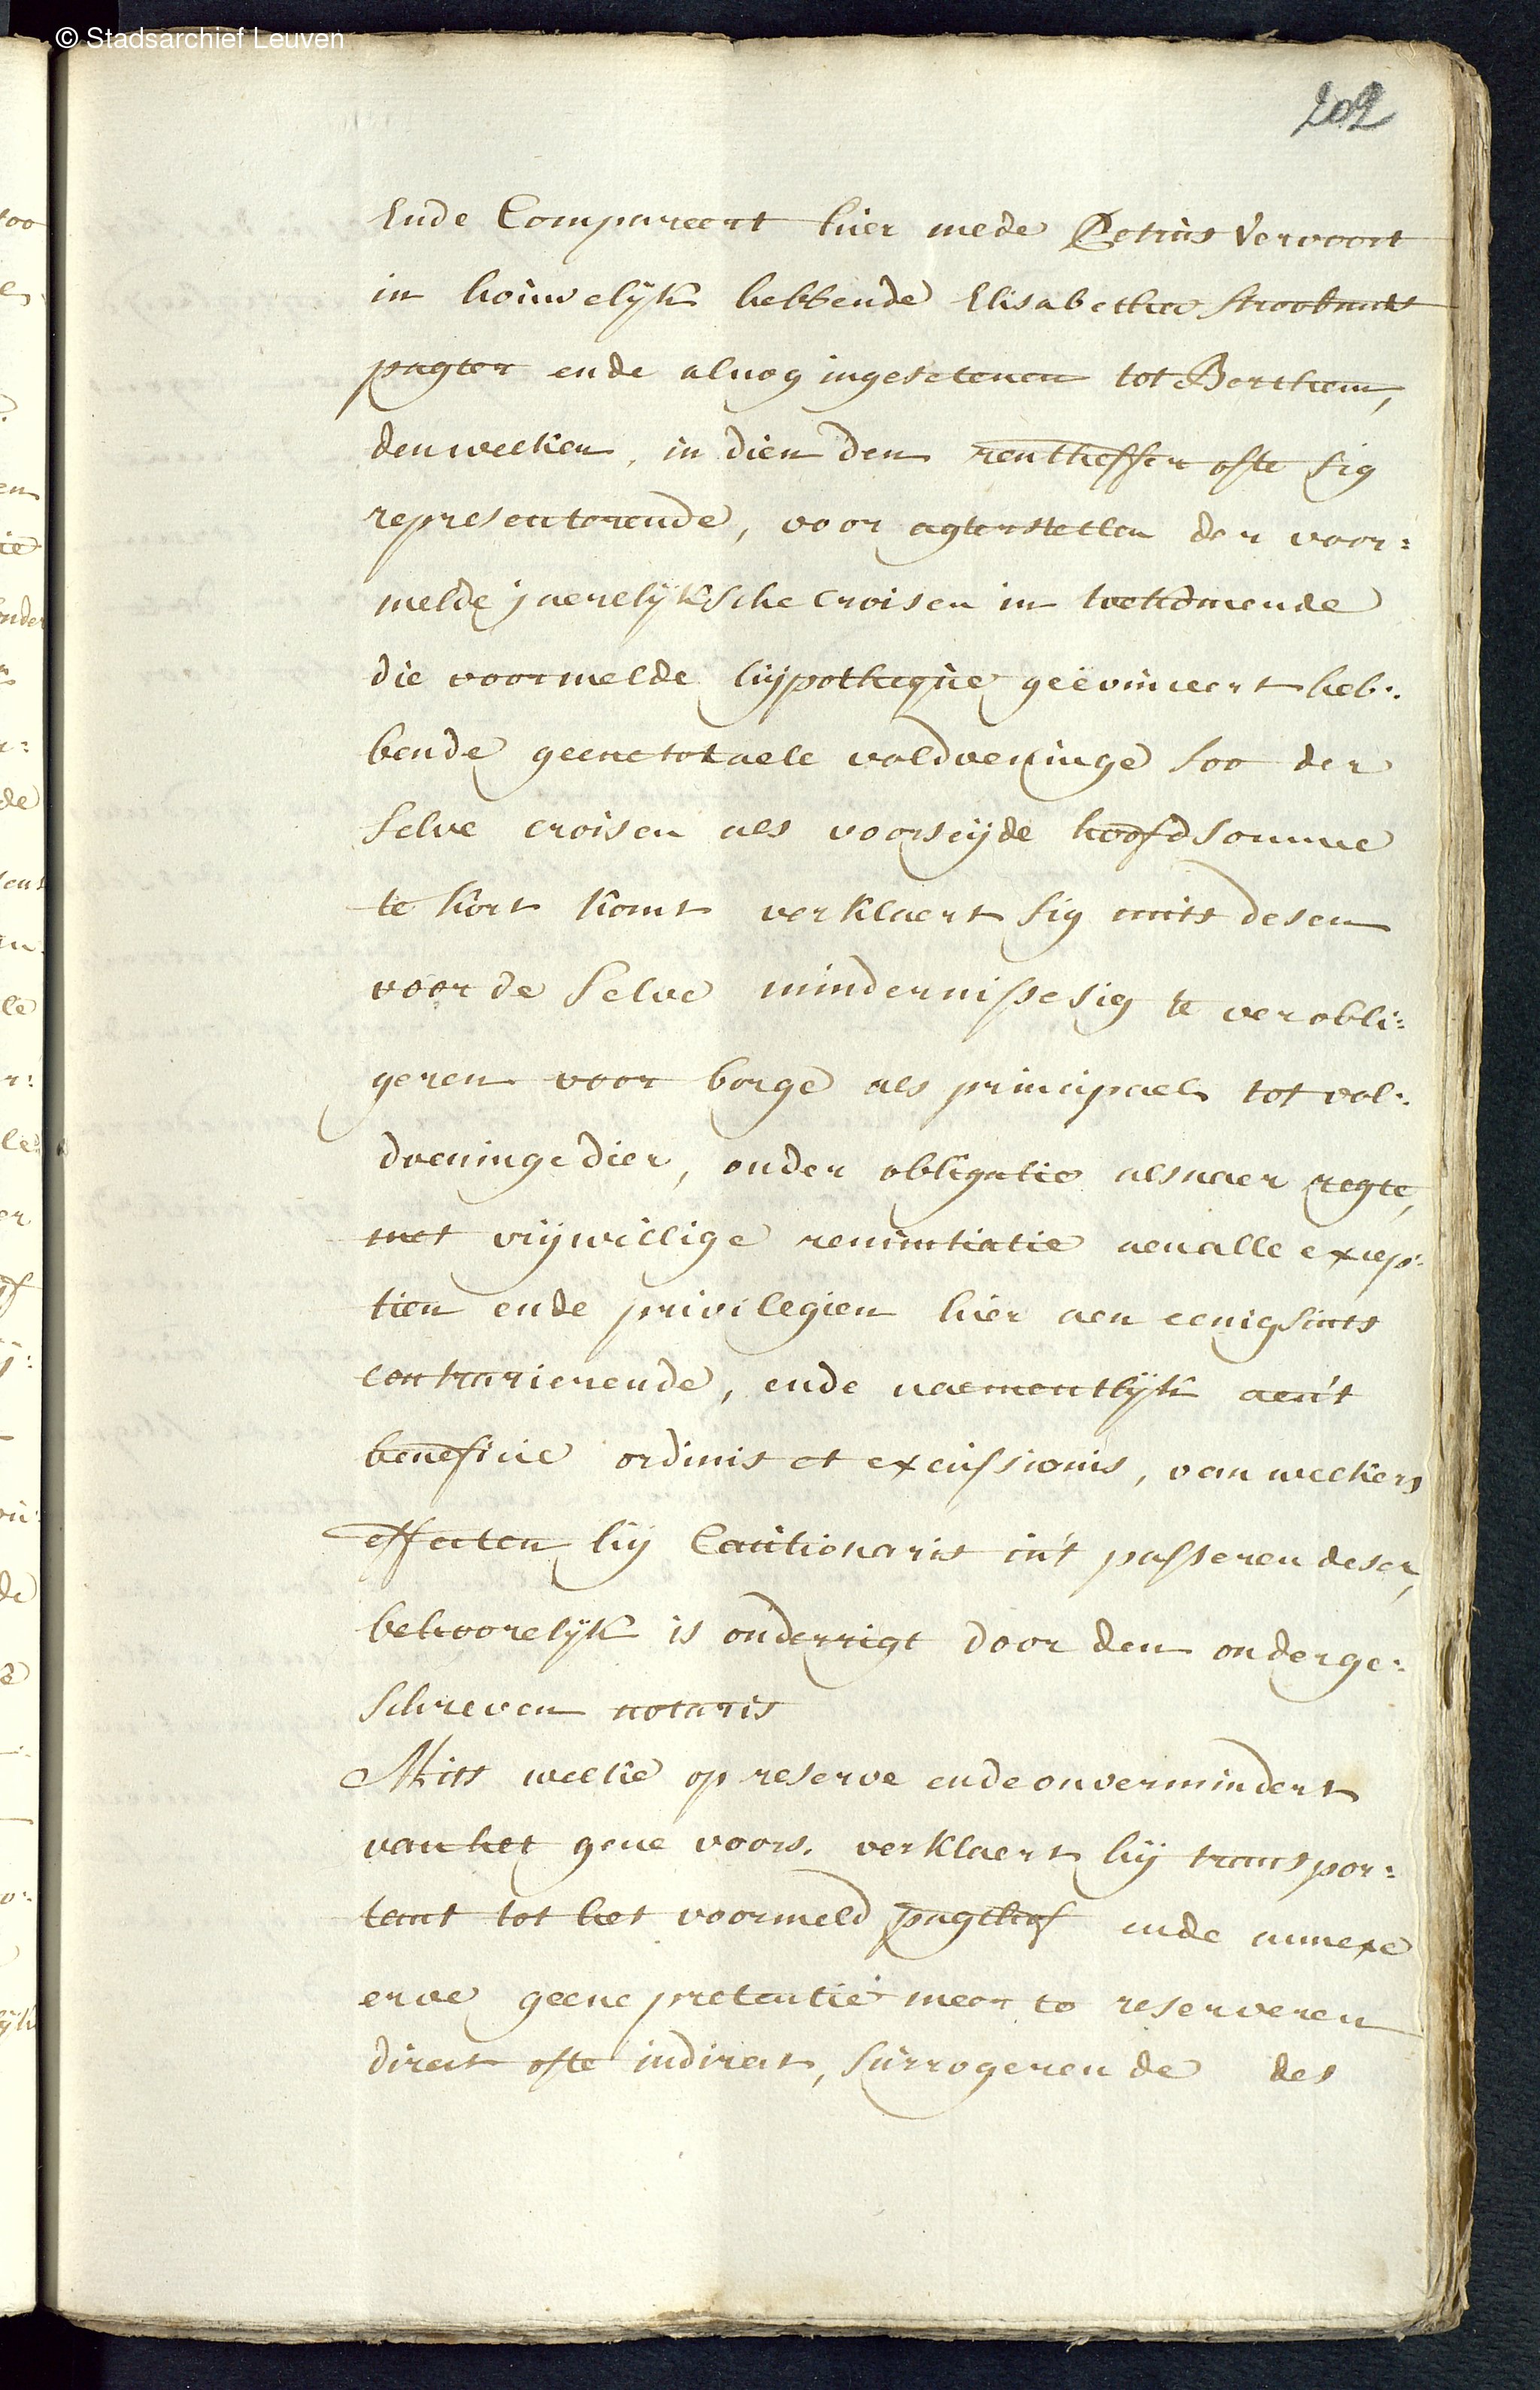 © Stadsarchief Leuven
202
Ende Compareert hier mede Petrus Vervoort
in houwelijk hebbende Elisabetha Stroobants
pagter ende alnog ingesetenen tot Berthem,
den welken, in dien den rentheffer ofte sig
representerende, voor agterstellen der voor:
melde jaerelijksche croisen in toekomende
die voormelde hijpotheque geëvinceert heb:
bende geene totaele voldoeninge soo der
selve croisen als voorseijde hoofdsomme
te kort komt verklaert sig mits desen
voor de selve mindernisse sig te verobli:
geren voor borge als principael tot vol:
doeninge dier, onder obligatie als naer regte,
met vrijwillige renuntiatie aen alle excep:
tien ende privilegien hier aen eenigsints
contrarierende, ende naementlijk aen't
beneficie ordinis et excussionis, van welkers
effecten hij Cautionaris in't passeren deser,
behoorelijk is onderrigt door den onderge:
schreven notaris
Mits welke op reserve ende onvermindert
van het gene voors. verklaert hij transpor:
tant tot het voormeld pagthof ende annexe
erve geene pretentie meer te reserveren
direct ofte indirect, surrogerende des